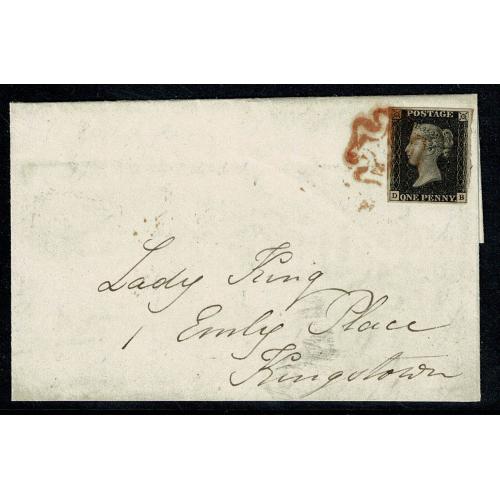 POSTAGE
D ONE PENNY B
Lady King
1 Emily Place
Kingstown